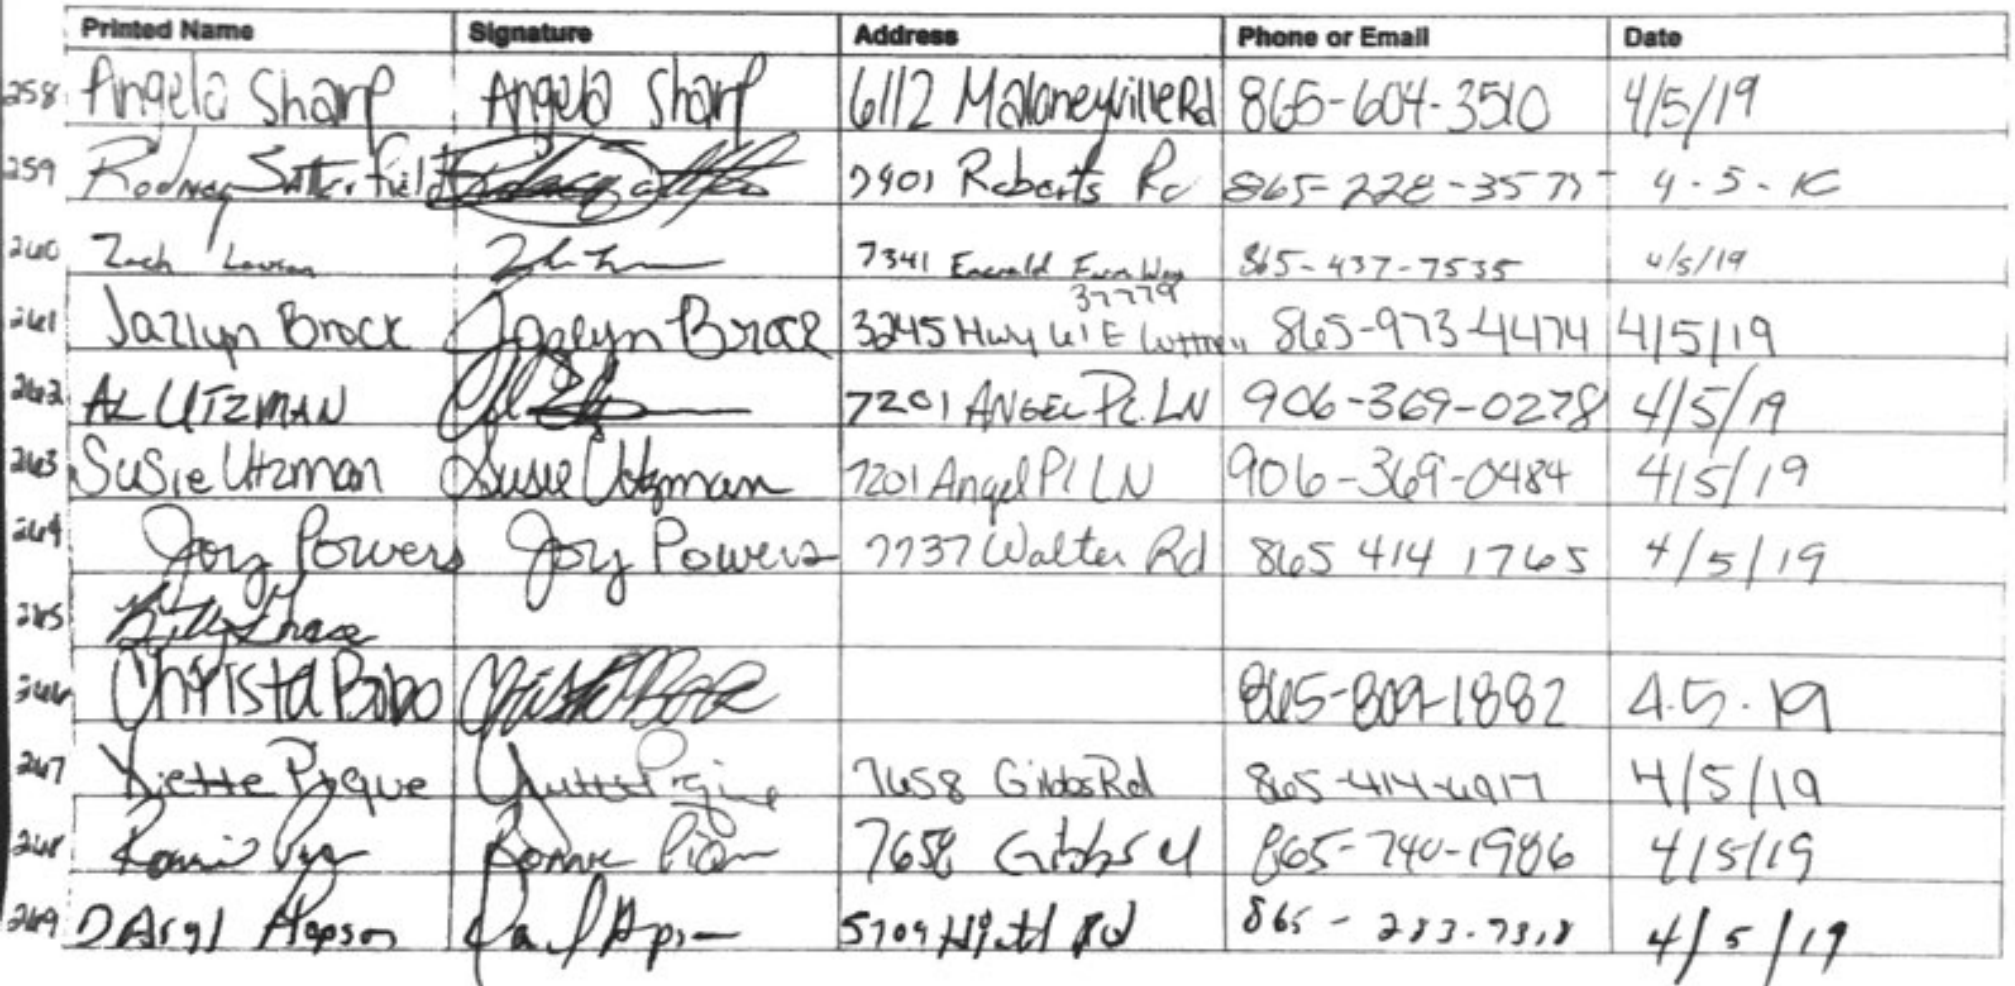 Printed Name Signature Address Phone or Email Date
258 Angela Sharp Angela Sharp 6112 Maloneyville Rd 865-604-3510 4/5/19
259 Rodney Satterfield 7901 Roberts 4-5-
260 Zach 7341 Emerald Farm Way 865-437-7535 4/5/19
37779
261 Jazlyn Brock Jazlyn Brock 3245 Hwy 61 E Luttrell 865-973-4474 4/5/19
262 AL UTZMAN 7201 ANGEL PL. LN 906-369-0278 4/5/19
263 Susie Utzman Susie Utzman 7201 Angel Pl LN 906-369-0484 4/5/19
264 Joy Powers Joy Powers 7737 Walter Rd 865 414 1765 4/5/19
265
266 Christa Bobo 865-809-1882 4.5.19
267 Pique 7658 Gibbs Rd 865-414-6917 4/5/19
268 Ronnie 7658 Gibbs 865-740-1986 4/5/19
269 DAryl Hopson Rd 4/5/19